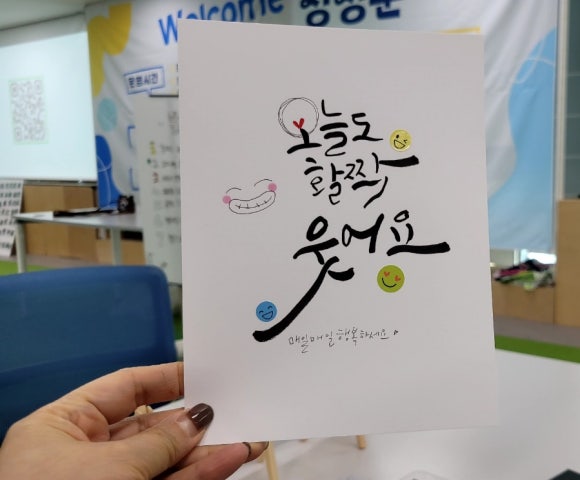 Welcome
운영시간
오늘도
활짝
웃어요
매일매일 행복하세요